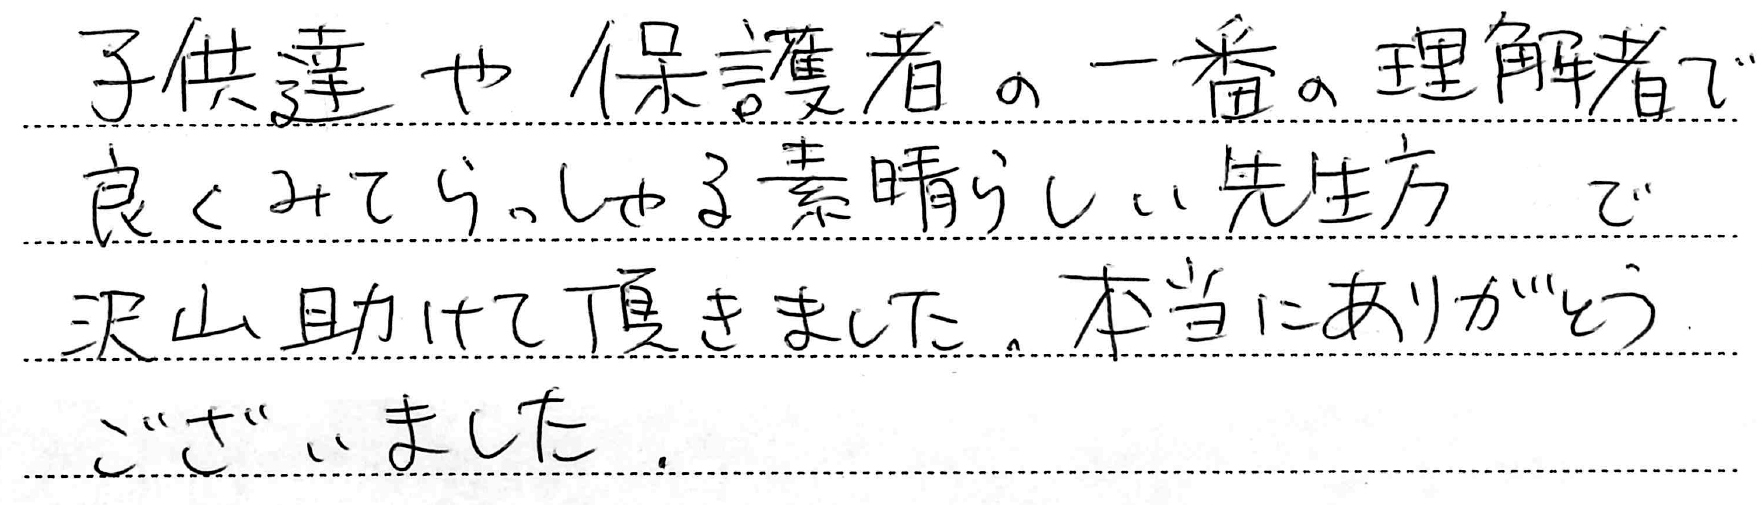 子供達や保護者の一番の理解者で
良くみてらっしゃる素晴らしい先生方で
沢山助けて頂きました。本当にありがとう
ございました.